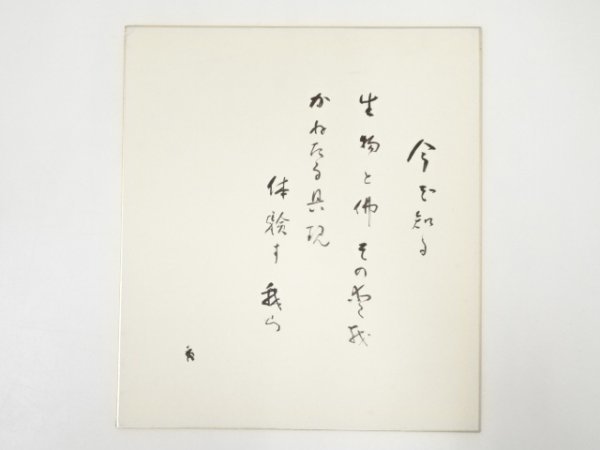 今を知る
生物と佛その霊我
かねたる具現
体験す我ら